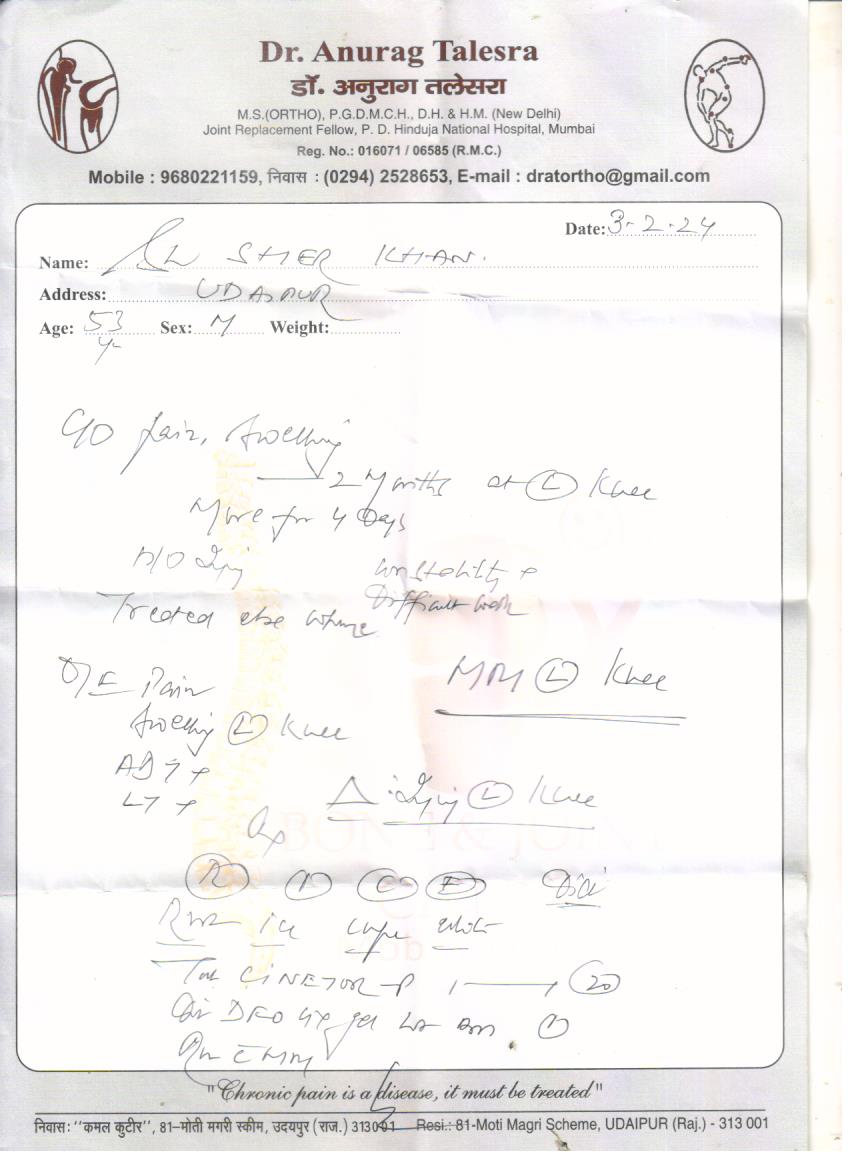 Dr. Anurag Talesra
डॉ. अनुराग तलेसरा
M.S.(ORTHO), P.G.D.M.C.H., D.H. & H.M. (New Delhi)
Joint Replacement Fellow, P. D. Hinduja National Hospital, Mumbai
Reg. No.: 016071 / 06585 (R.M.C.)
Mobile : 9680221159, निवास : (0294) 2528653, E-mail : dratortho@gmail.com
Date: 3-2-24
Name: SHER KHAN.
Address: UDAIPUR
Age: 53 Sex: M Weight:
yr
C/O Pain, Swelling
2 Months at (L) Knee
More for 4 Days
H/O Injury Instability +
Difficult walk
Treated else where
O/E Pain MRI (L) Knee
Swelling (L) Knee
ADT +
LT +
Δ : Injury (L) Knee
Rx
BONE & JOINT
(R) (I) (C) (E)
Rest Ice
Tab
(20)
(1)
"Chronic pain is a disease, it must be treated"
निवास : "कमल कुटीर", 81–मोती मगरी स्कीम, उदयपुर (राज.) 313001 Resi.: 81-Moti Magri Scheme, UDAIPUR (Raj.) - 313 001